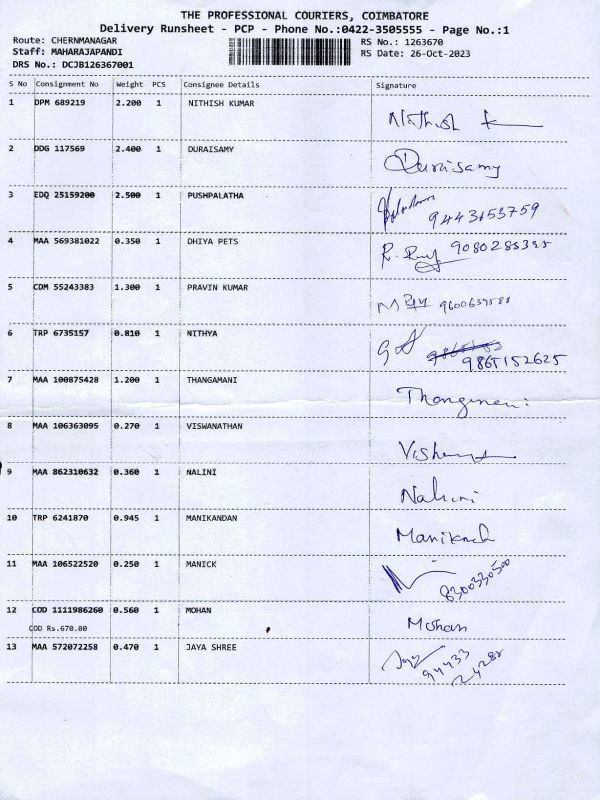 THE PROFESSIONAL COURIERS, COIMBATORE
Delivery Runsheet - PCP - Phone No.:0422-3505555 - Page No.:1
Route: CHERNMANAGAR RS No.: 1263670
Staff: MAHARAJAPANDI RS Date: 26-Oct-2023
DRS No.: DCJB126367001
S No Consignment No Weight PCS Consignee Details Signature
1 DPM 689219 2.200 1 NITHISH KUMAR Nithish K
2 DDG 117569 2.400 1 DURAISAMY Duraisamy
3 EDQ 25159200 2.500 1 PUSHPALATHA 9443153759
4 MAA 569381022 0.350 1 DHIYA PETS R.
5 CDM 55243383 1.300 1 PRAVIN KUMAR
6 TRP 6735157 0.810 1 NITHYA
9865152625
7 MAA 100875428 1.200 1 THANGAMANI Thangamani
8 MAA 106363095 0.270 1 VISWANATHAN
9 MAA 862310632 0.360 1 NALINI Nalini
10 TRP 6241870 0.945 1 MANIKANDAN
11 MAA 106522520 0.250 1 MANICK 8300330500
12 COD 1111986260 0.560 1 MOHAN Mohan
COD Rs.670.00
13 MAA 572072258 0.470 1 JAYA SHREE Jaya 94433
24288